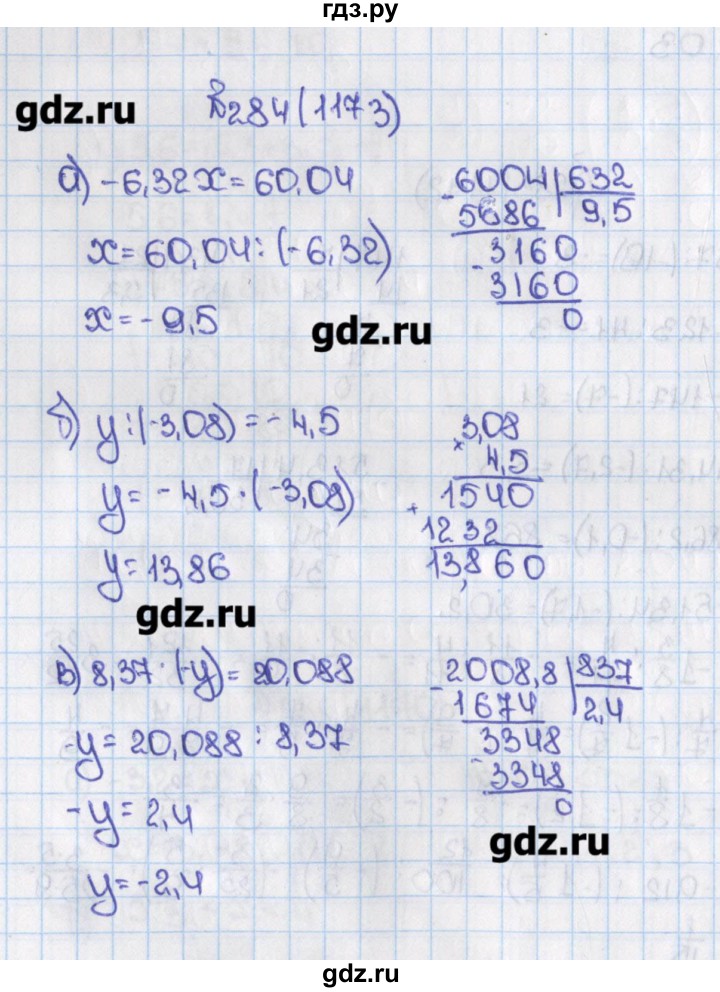 гдз.ру
gdz.ru
№284(1173)
а) -6,32x = 60,04
x = 60,04 : (-6,32)
x = -9,5
- 6004 | 632
5686 | 9,5
- 3160
3160
0
gdz.ru
б) y : (-3,08) = -4,5
y = -4,5 · (-3,08)
y = 13,86
3,08
× 4,5
1540
+ 1232
13,860
gdz.ru
в) 8,37 · (-y) = 20,088
-y = 20,088 : 8,37
-y = 2,4
y = -2,4
- 2008,8 | 837
1674 | 2,4
- 3348
3348
0
gdz.ru
gdz.ru